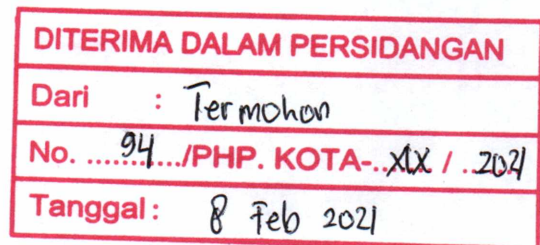 DITERIMA DALAM PERSIDANGAN
Dari : Termohon
No. ......94..../PHP. KOTA-..XIX / ..2021
Tanggal : 8 Feb 2021